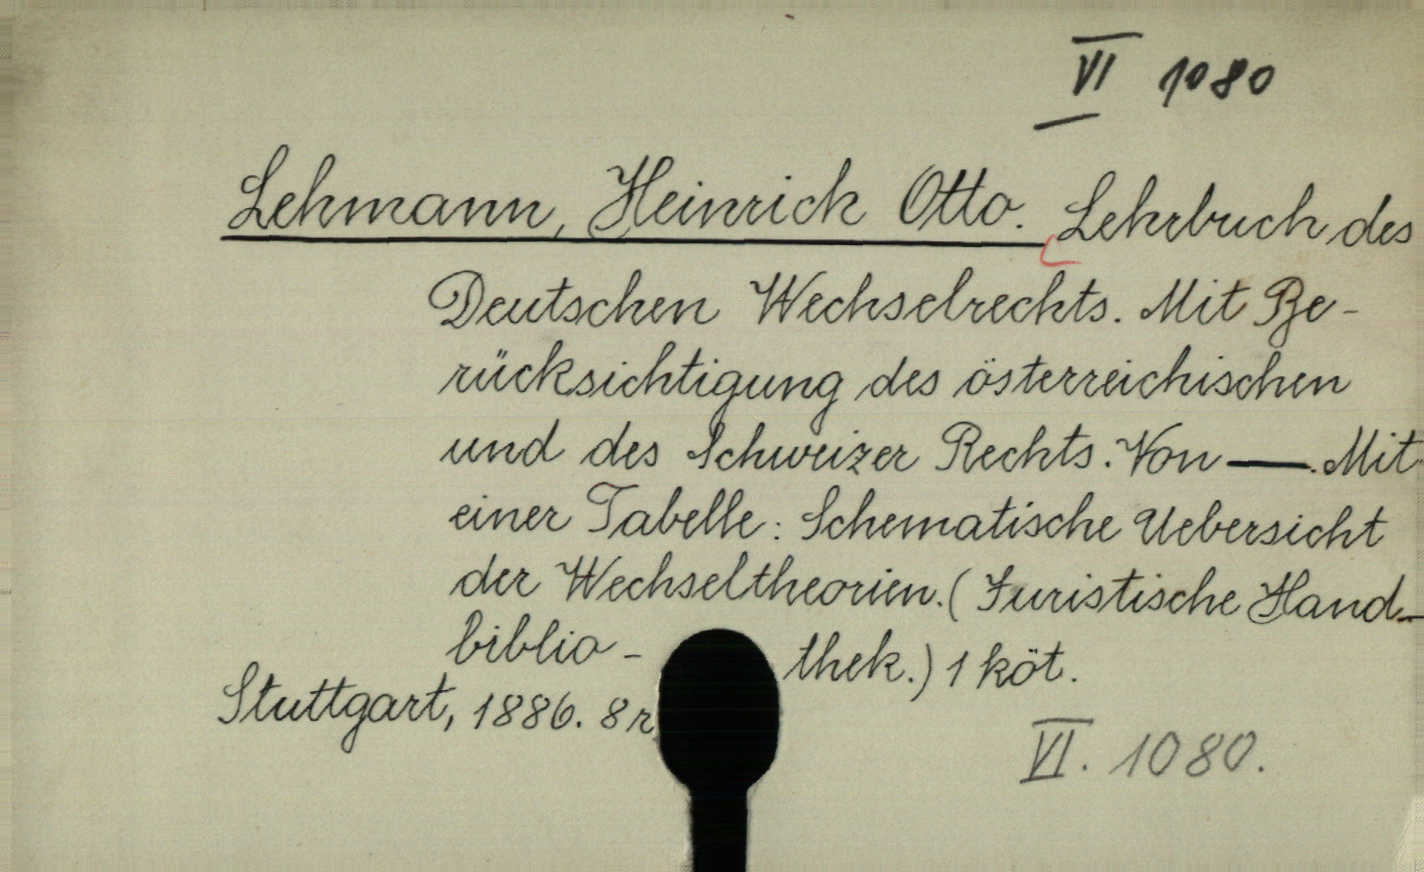 VI 1080
Lehmann, Heinrich Otto. Lehrbuch des
Deutschen Wechselrechts. Mit Be-
rücksichtigung des österreichischen
und des Schweizer Rechts. Von —. Mit
einer Tabelle: Schematische Uebersicht
der Wechseltheorien. (Juristische Hand-
biblio- thek.) 1 köt.
Stuttgart, 1886. 8r
VI. 1080.